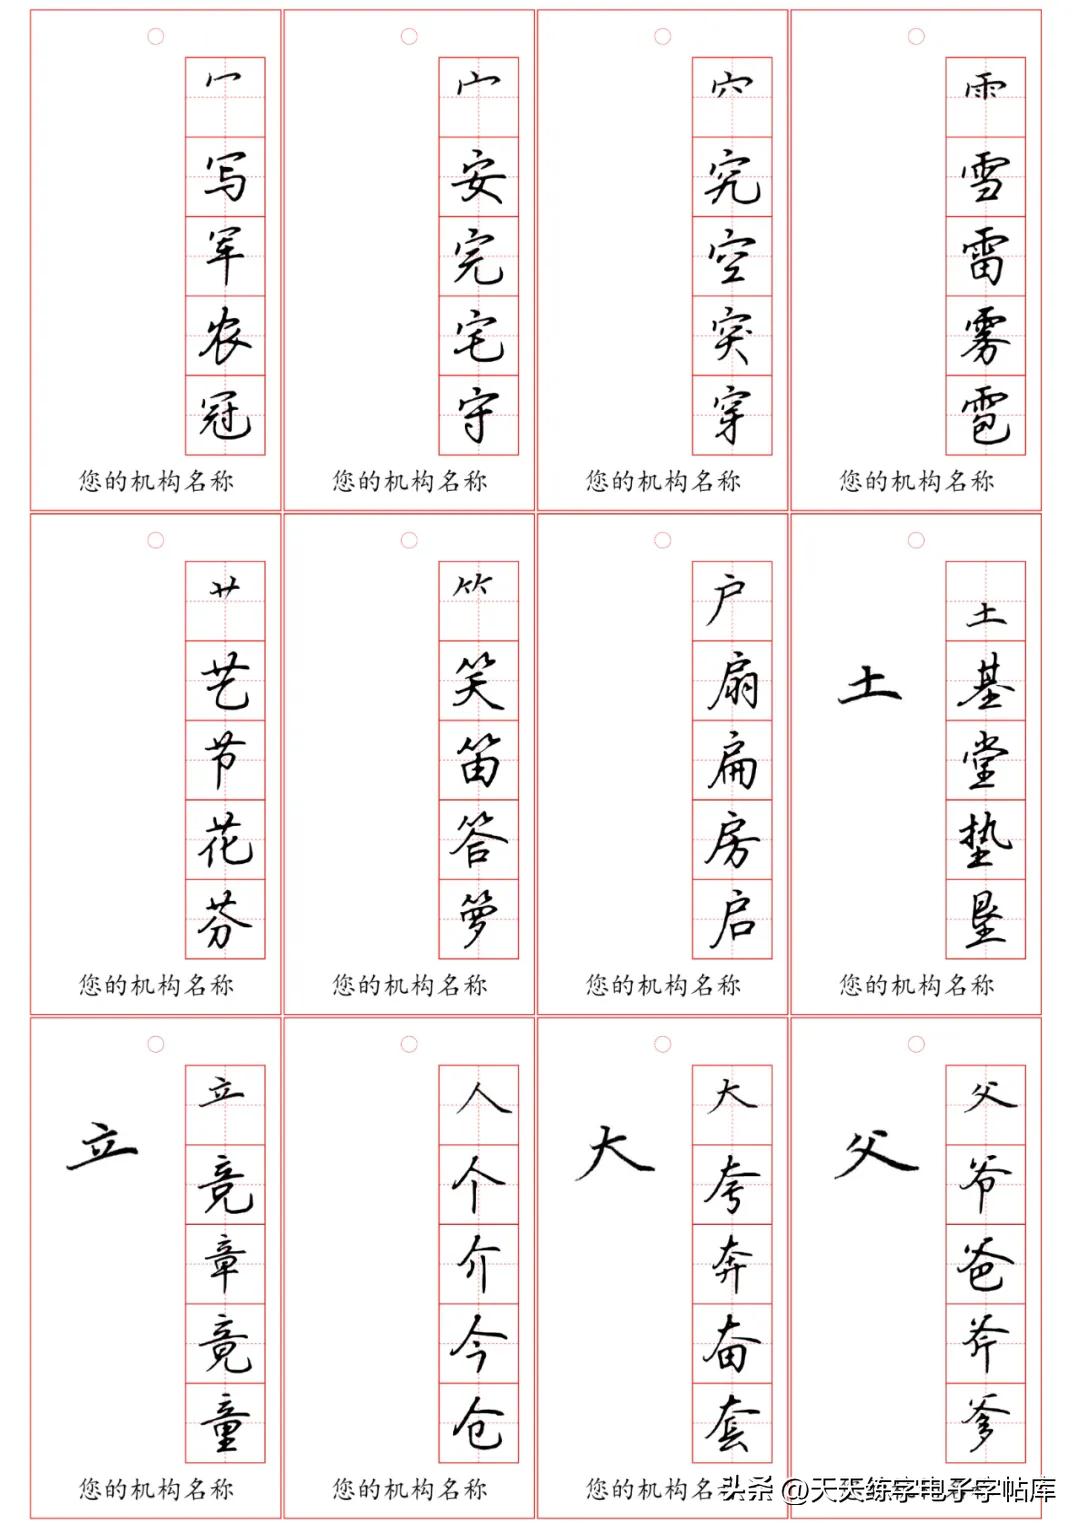 冖
写
军
农
冠
您的机构名称
宀
安
完
宅
守
您的机构名称
穴
究
空
突
穿
您的机构名称
雨
雪
雷
雾
雹
您的机构名称
艹
艺
节
花
芬
您的机构名称
⺮
笑
笛
答
箩
您的机构名称
户
扇
扁
房
启
您的机构名称
土
土
基
堂
垫
垦
您的机构名称
立
立
竞
章
竟
童
您的机构名称
人
个
介
今
仓
您的机构名称
大
大
夸
奔
奋
套
您的机构名称
父
父
爷
爸
斧
爹
头条 @天天练字电子字帖库